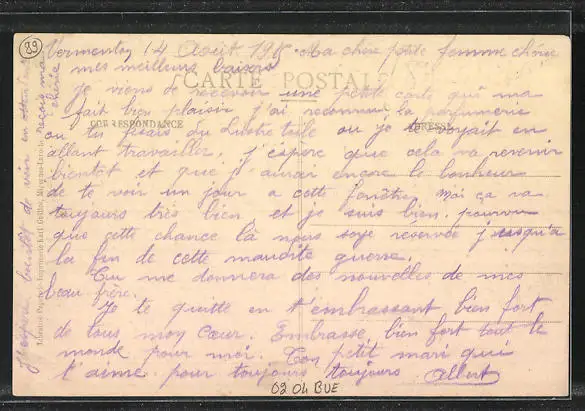 89
Vermenton 14 Août 19 Ma chère petite femme chérie
mes meilleurs baisers
CARTE POSTALE
je viens de recevoir une petite carte qui ma
fait bien plaisir j'ai reconnu la parfumerie
CORRESPONDANCE
ADRESSE
ou tu fesais du toile ou je te voyait en
allant travailler. j'espère que cela va revenir
bientot et que j'aurai encore le bonheur
de te voir un jour a cette fenêtre moi ça va
toujours très bien et je suis bien pourvu
que cette chance là nous soye réservée jusqu'a
la fin de cette maudite guerre.
Tu me donnera des nouvelles de mes
beau frère.
Je te quitte en t'embrassant bien fort
de tous mon cœur. Embrasse bien fort tout le
monde pour moi. Ton petit mari qui
t'aime pour toujours toujours Albert
de rien en
reçois ma
chérie
02 04 BUE